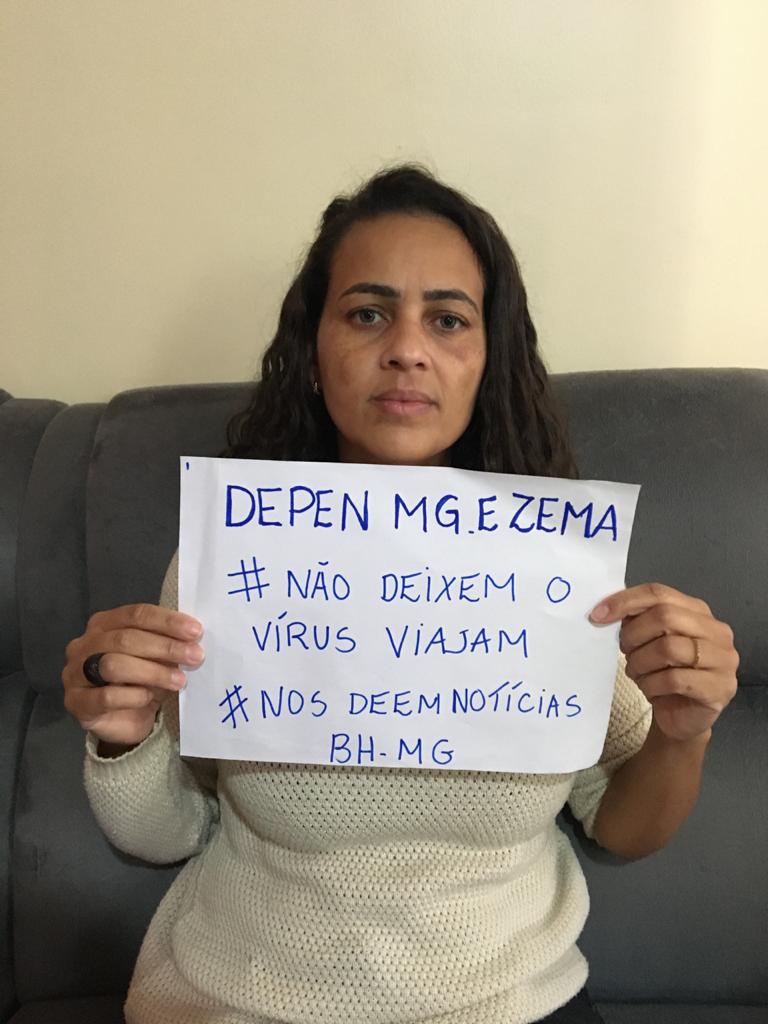 DEPEN MG.E ZEMA
# NÃO DEIXEM O
VÍRUS VIAJAM
# NOS DEEM NOTÍCIAS
BH-MG